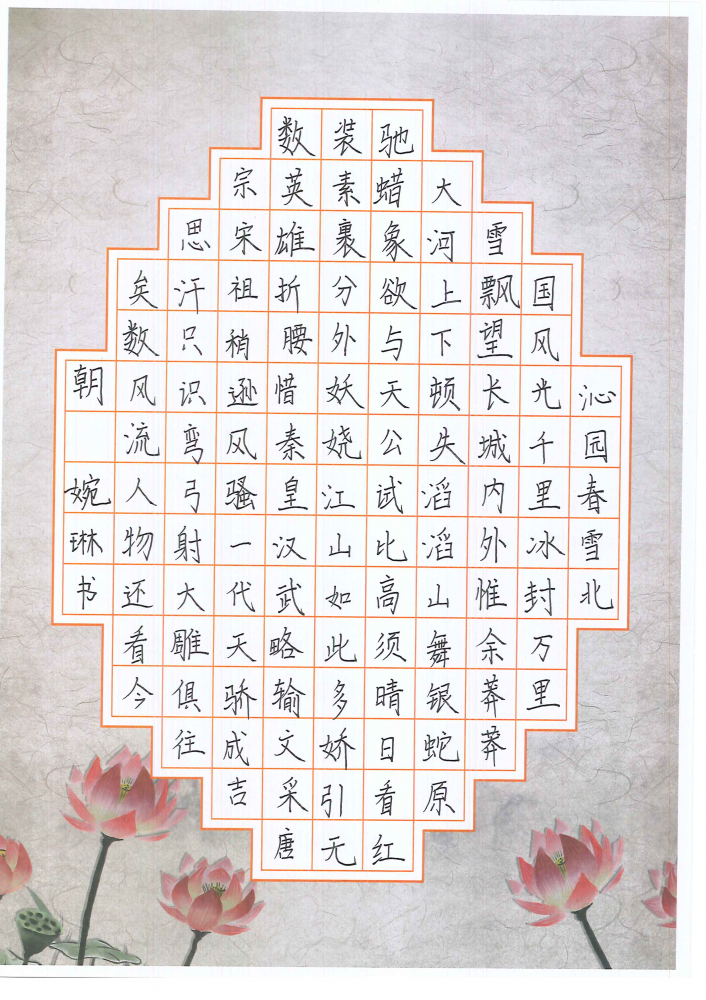 沁园春雪北
国风光千里冰封万里
雪飘望长城内外惟余莽莽
大河上下顿失滔滔山舞银蛇原
驰蜡象欲与天公试比高须晴日看红
装素裹分外妖娆江山如此多娇引无
数英雄折腰惜秦皇汉武略输文采唐
宗宋祖稍逊风骚一代天骄成吉
思汗只识弯弓射大雕俱往
矣数风流人物还看今
朝 婉琳书